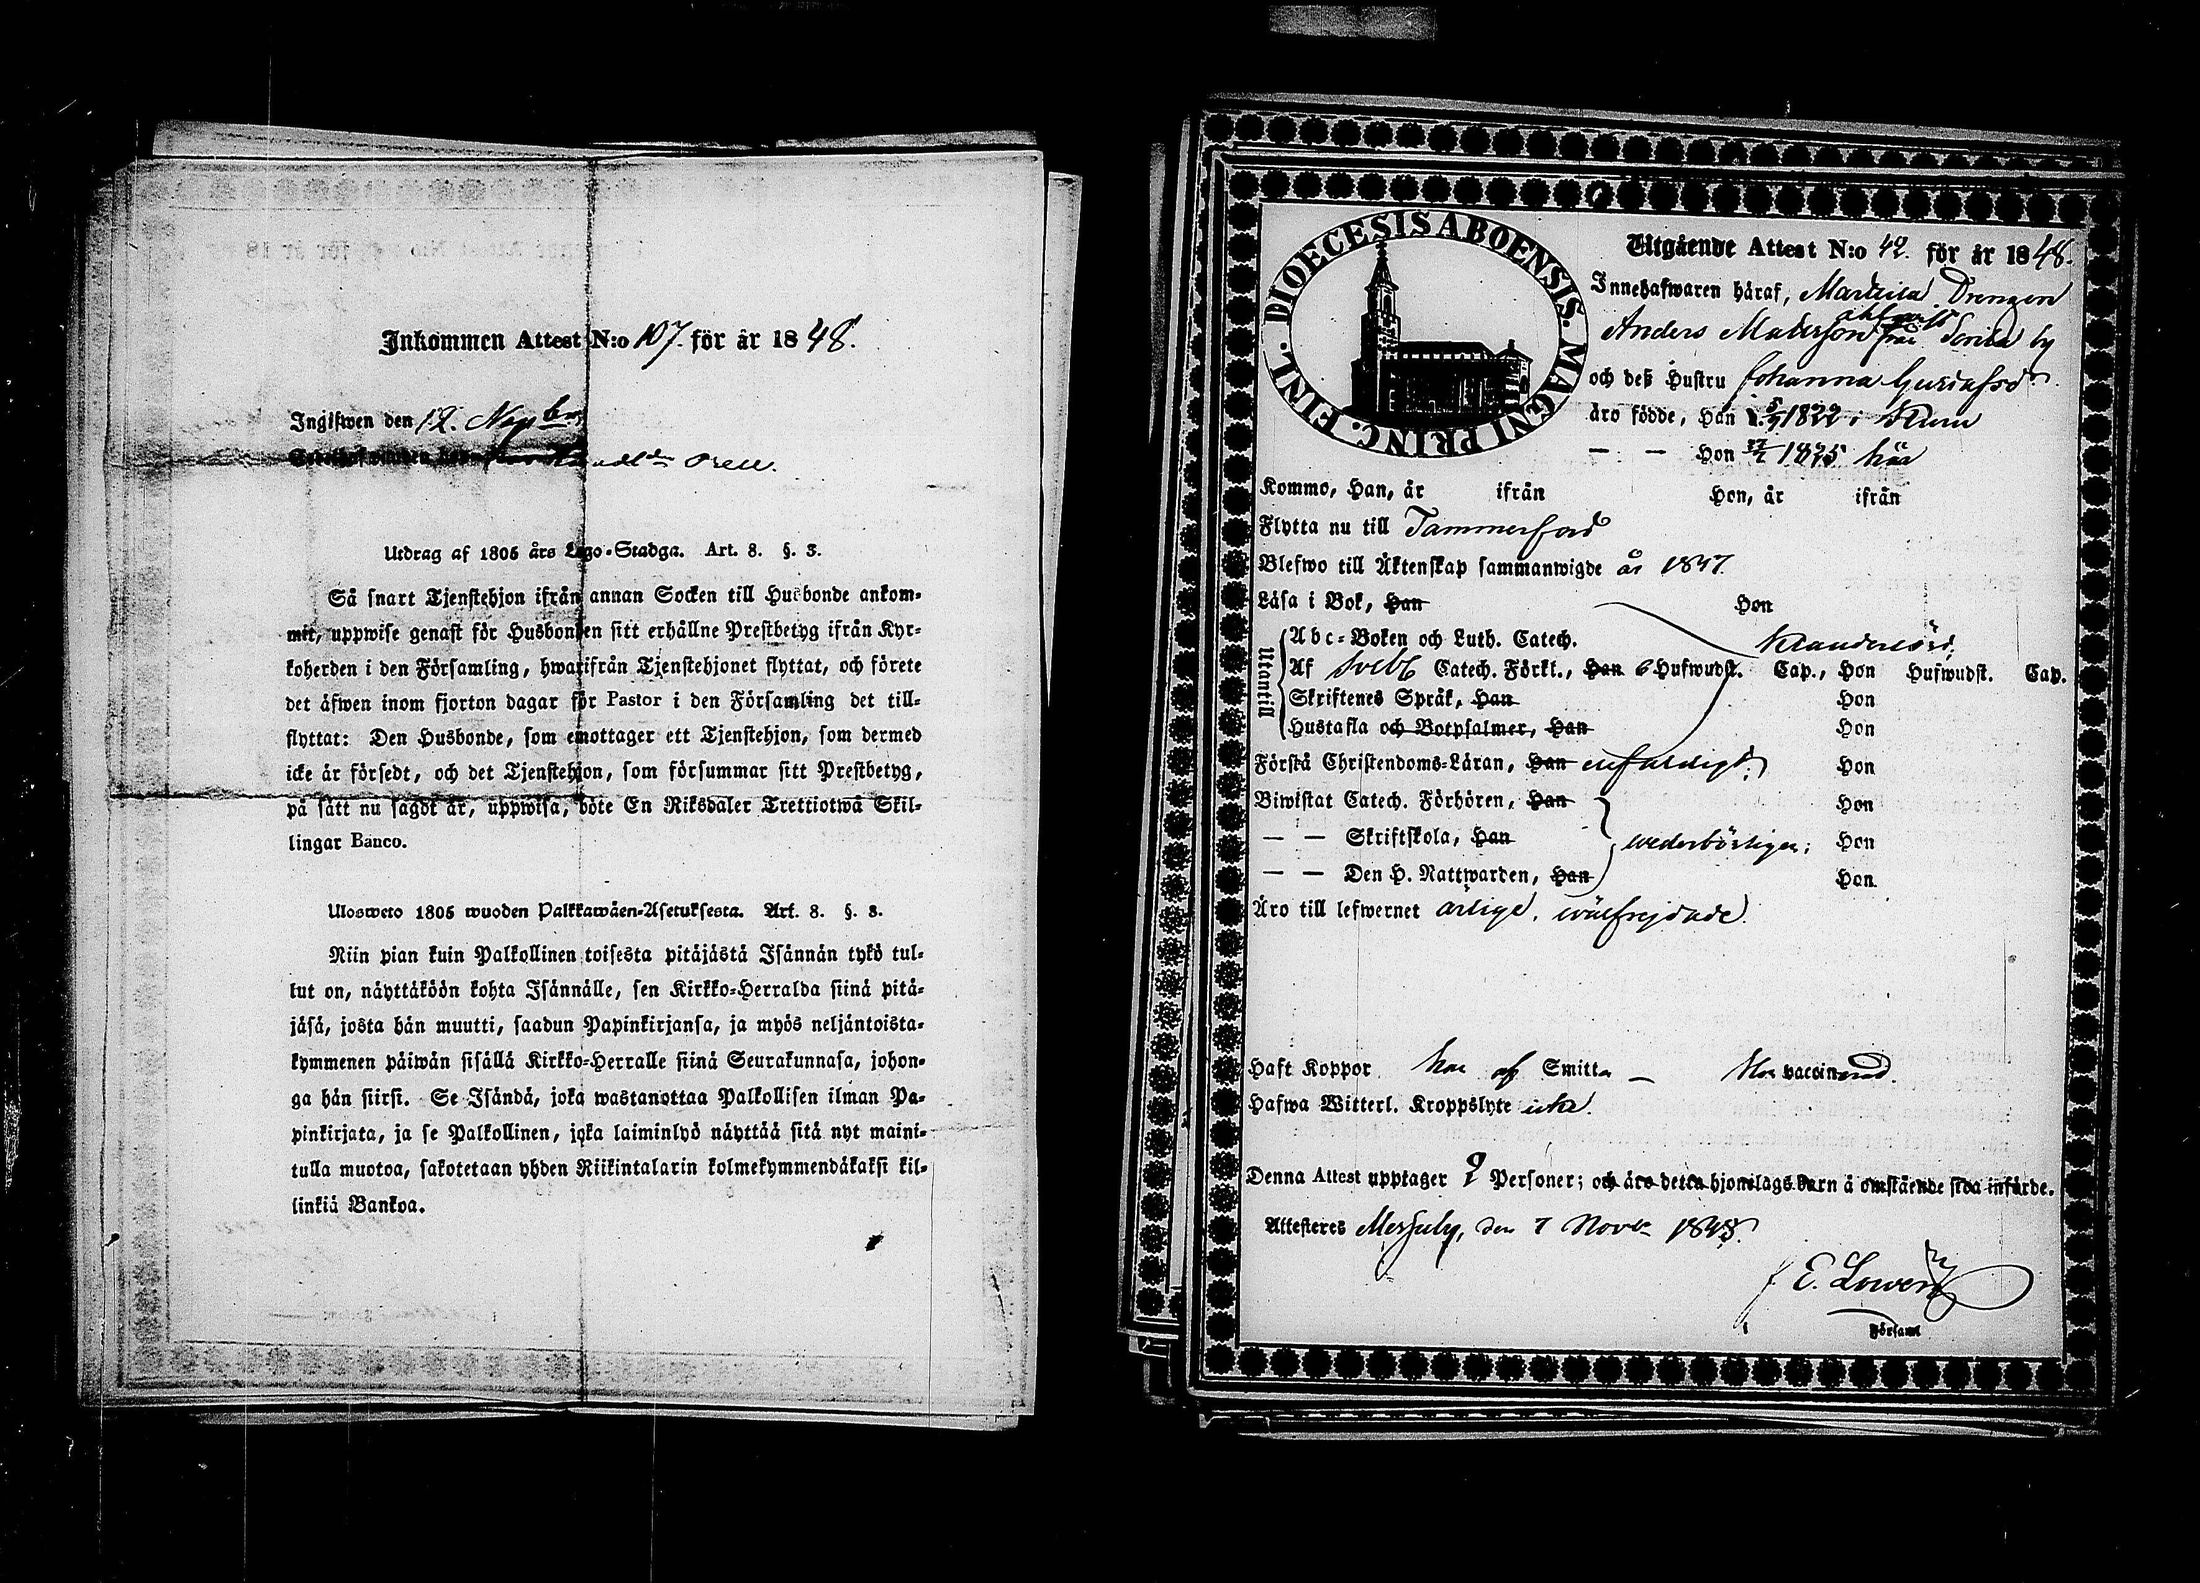 Inkommen Attest N:o 107. för år 1848.
Ingifwen den 12. Novbr
Utdrag af 1805 års Lego-Stadga. Art. 8. §. 3.
Så snart Tjenstehjon ifrån annan Socken till Husbonde ankom-
mit, uppwise genast för Husbonden sitt erhållne Prestbetyg ifrån Kyr-
koherden i den Församling, hwarifrån Tjenstehjonet flyttat, och förete
det äfwen inom fjorton dagar för Pastor i den Församling det till-
flyttat: Den Husbonde, som emottager ett Tjenstehjon, som dermed
icke är försedt, och det Tjenstehjon, som försummar sitt Prestbetyg,
på sätt nu sagdt är, uppwisa, böte En Riksdaler Trettiotwå Skil-
lingar Banco.
Ulosweto 1805 wuoden Palkkawäen-Asetuksesta. Art. 8. §. 3.
Niin pian kuin Palkollinen toisesta pitäjästä Isännän tykö tul-
lut on, näyttäköön kohta Isännälle, sen Kirkko-Herralda siinä pitä-
jäsä, josta hän muutti, saadun Papinkirjansa, ja myös neljäntoista-
kymmenen päiwän sisällä Kirkko-Herralle siinä Seurakunnasa, johon-
ga hän siirsi. Se Isändä, joka wastanottaa Palkollisen ilman Pa-
pinkirjata, ja se Palkollinen, joka laiminlyö näyttää sitä nyt maini-
tulla muotoa, sakotetaan yhden Riikintalarin kolmekymmendäkaksi kil-
linkiä Bankoa.
DIOECESIS ABOENSIS. MAGNI PRINC. FINL.
Utgående Attest N:o 42. för år 1848.
Innehafwaren häraf, Drengen
Anders Matsson från by
och deß Hustru Johanna Gustafsdr.
äro födde, Han 5/7 1822 i
— — Hon 27/2 1825 här
Kommo, Han, år ifrån Hon, år ifrån
Flytta nu till Tammerfors
Blefwo till Äktenskap sammanwigde år 1847.
Läsa i Bok, Han Hon
Utantill
Abc-Boken och Luth. Catech.
Af Svebb Catech. Förkl., Han 6 Hufwudst. Cap., Hon Hufwudst. Cap.
Skriftenes Språk, Han Hon
Hustafla och Botpsalmer, Han Hon
Förstå Christendoms-Läran, Han enfaldigt; Hon
Biwistat Catech. Förhören, Han Hon
— — Skriftskola, Han wederbörligen; Hon
— — Den H. Nattwarden, Han Hon
Äro till lefwernet ärlige, wälfrejdade.
Haft Koppor han af Smitta — Hon vaccinerad.
Hafwa Witterl. Kroppslyte icke.
Denna Attest upptager 2 Personer; och äro detta hjonelags barn å omstående sida införde.
Attesteras den 7 Novbr 1848.
E. Lowen
Församl